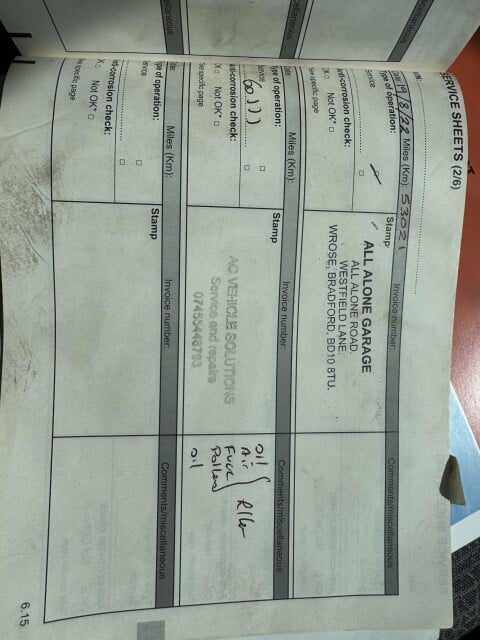 SERVICE SHEETS (2/6)
VIN:
Date: 19/8/22 Miles (Km): 53021
Invoice number:
Comments/miscellaneous
Type of operation:
Stamp
Service
Anti-corrosion check:
OK Not OK*
*See specific page
ALL ALONE GARAGE
ALL ALONE ROAD.
WESTFIELD LANE.
WROSE, BRADFORD, BD10 8TU.
Date: Miles (Km):
Invoice number:
Comments/miscellaneous
Type of operation:
Stamp
Service
Anti-corrosion check:
OK Not OK*
*See specific page
AC VEHICLE SOLUTIONS
Service and repairs
07455448793
Oil
Air
Fuel
Pollen
Oil
Date: Miles (Km):
Invoice number:
Comments/miscellaneous
Type of operation:
Stamp
Service
Anti-corrosion check:
OK Not OK*
*See specific page
6.15